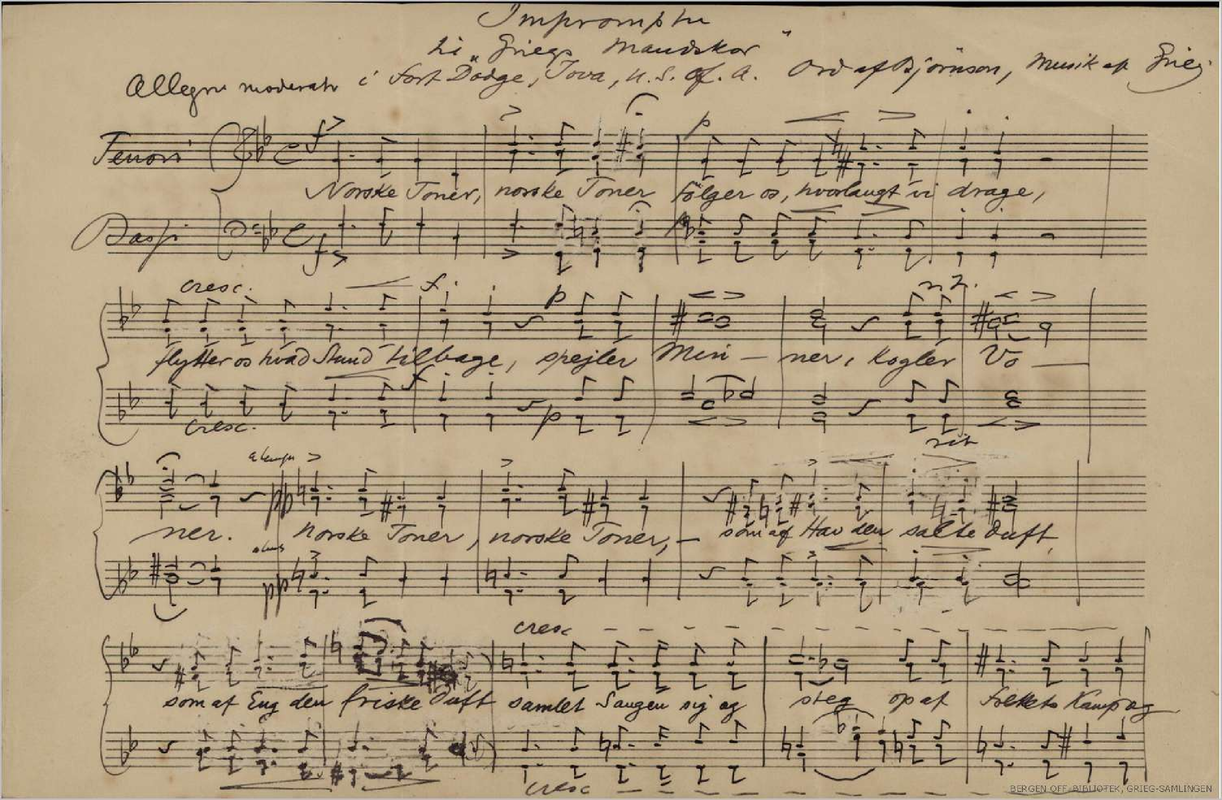 Impromptu
til „Griegs Mandskor"
Allegro moderato i Fort Dodge, Iova, U.S. of. A. Ord af Bjørnson, Musik af Grieg
Tenori f p
Norske Toner, norske Toner følger os, hvorlangt vi drage,
Bassi f p
cresc. f. p rit.
flytter os hvad Stund tilbage, spejler Min – ner, kogler Vo
cresc. f p rit
a tempo
pp
ner. Norske Toner, norske Toner, – som af Hav den salte Duft
pp
cresc
som af Eng den friske Duft samlet Sangen sig og steg op af Folkets Kamp og
cresc
BERGEN OFF. BIBLIOTEK, GRIEG-SAMLINGEN